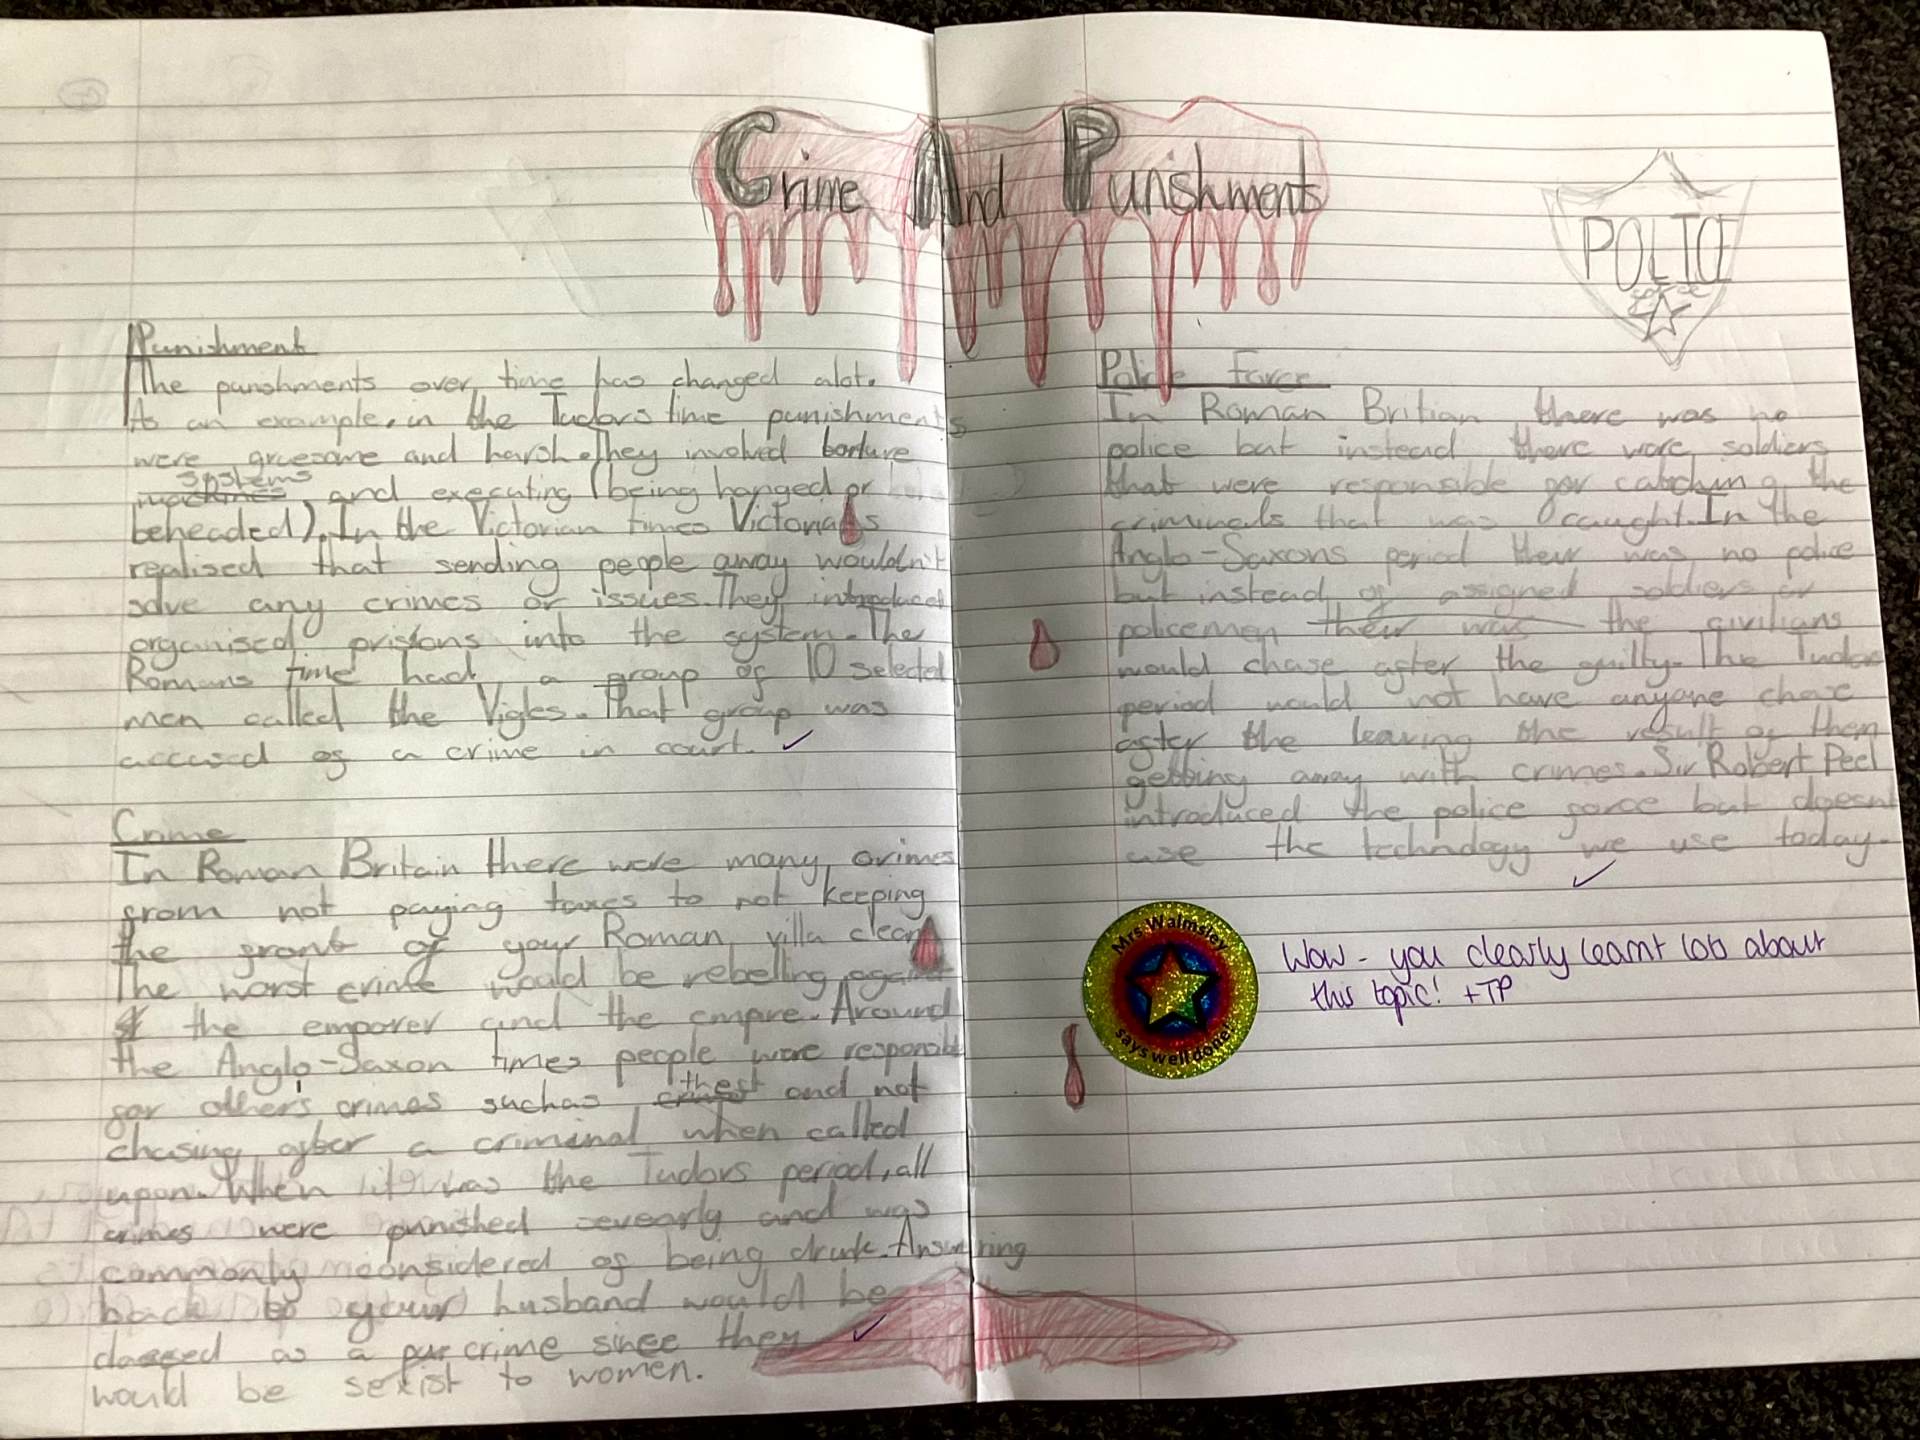 Crime And Punishments
Punishment
The punshments over time has changed alot.
As an example, in the Tudors time punishments
were gruesome and harsh. They involved torture
systems
machines, and executing (being hanged or
beheaded). In the Victorian times Victorians
realised that sending people away wouldn't
solve any crimes or issues. They introduced
organised pristons into the system. The
Romans time had a group of 10 selected
men called the Vigles. That group was
accused of a crime in court.
Crime
In Roman Britain there were many crimes
from not paying taxes to not keeping
the front of your Roman villa clean
The worst crime would be rebelling against
the emporer and the empire. Around
the Anglo-Saxon times people were responsible
for other's crimes suchas theft and not
chasing after a criminal when called
upon. When it was the Tudors period, all
crimes were punished severly and was
commonly considered of being drunk. Answering
back to your husband would be
classed as a crime since they
would be sexist to women.
POLICE
Police Force
In Roman Britian there was no
police but instead there were soldiers
that were responsible for catching the
criminals that was caught. In the
Anglo-Saxons period their was no police
but instead of assigned soldiers or
policemen their was the civilians
would chase after the guilty. The Tudor
period would not have anyone chase
after the leaving the result of them
getting away with crimes. Sir Robert Peel
introduced the police force but doesnt
use the technology we use today.
Mrs Walmsley
says well done!
Wow - you clearly learnt lots about
this topic! +TP